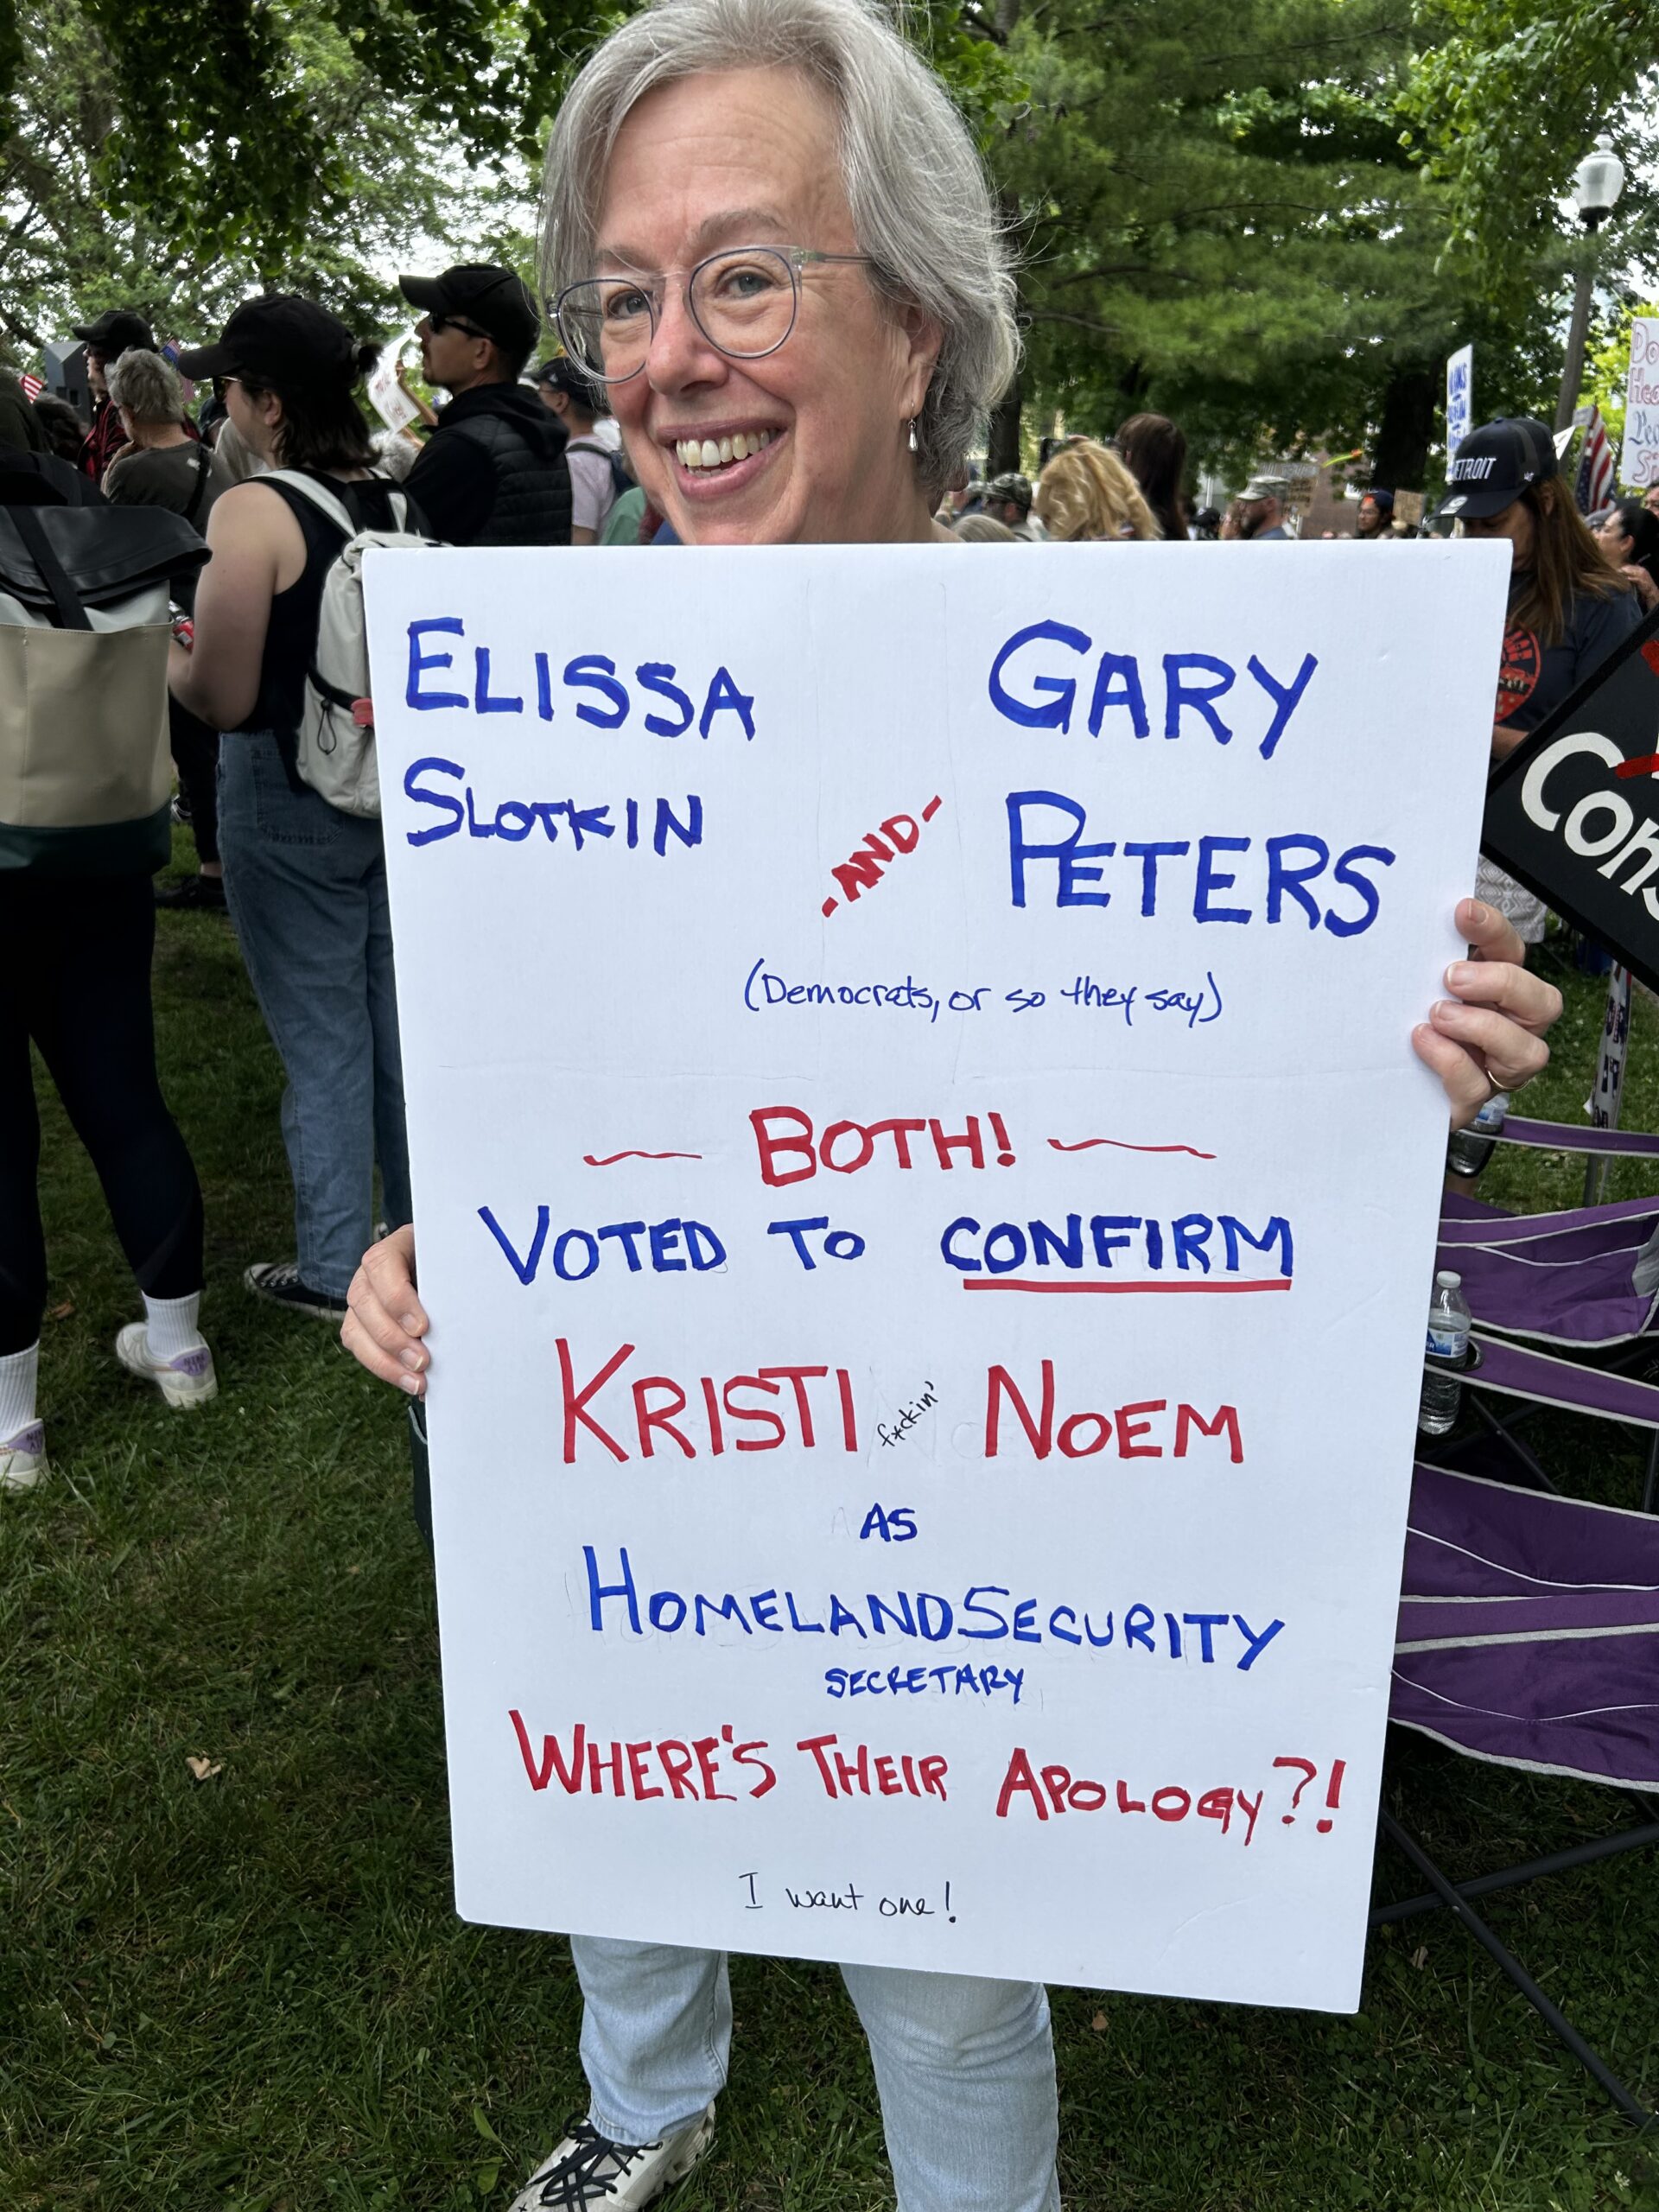 ELISSA
SLOTKIN
-AND-
GARY
PETERS
(Democrats, or so they say)
BOTH!
VOTED TO CONFIRM
KRISTI f*ckin' NOEM
AS
HOMELAND SECURITY
SECRETARY
WHERE'S THEIR APOLOGY?!
I want one!